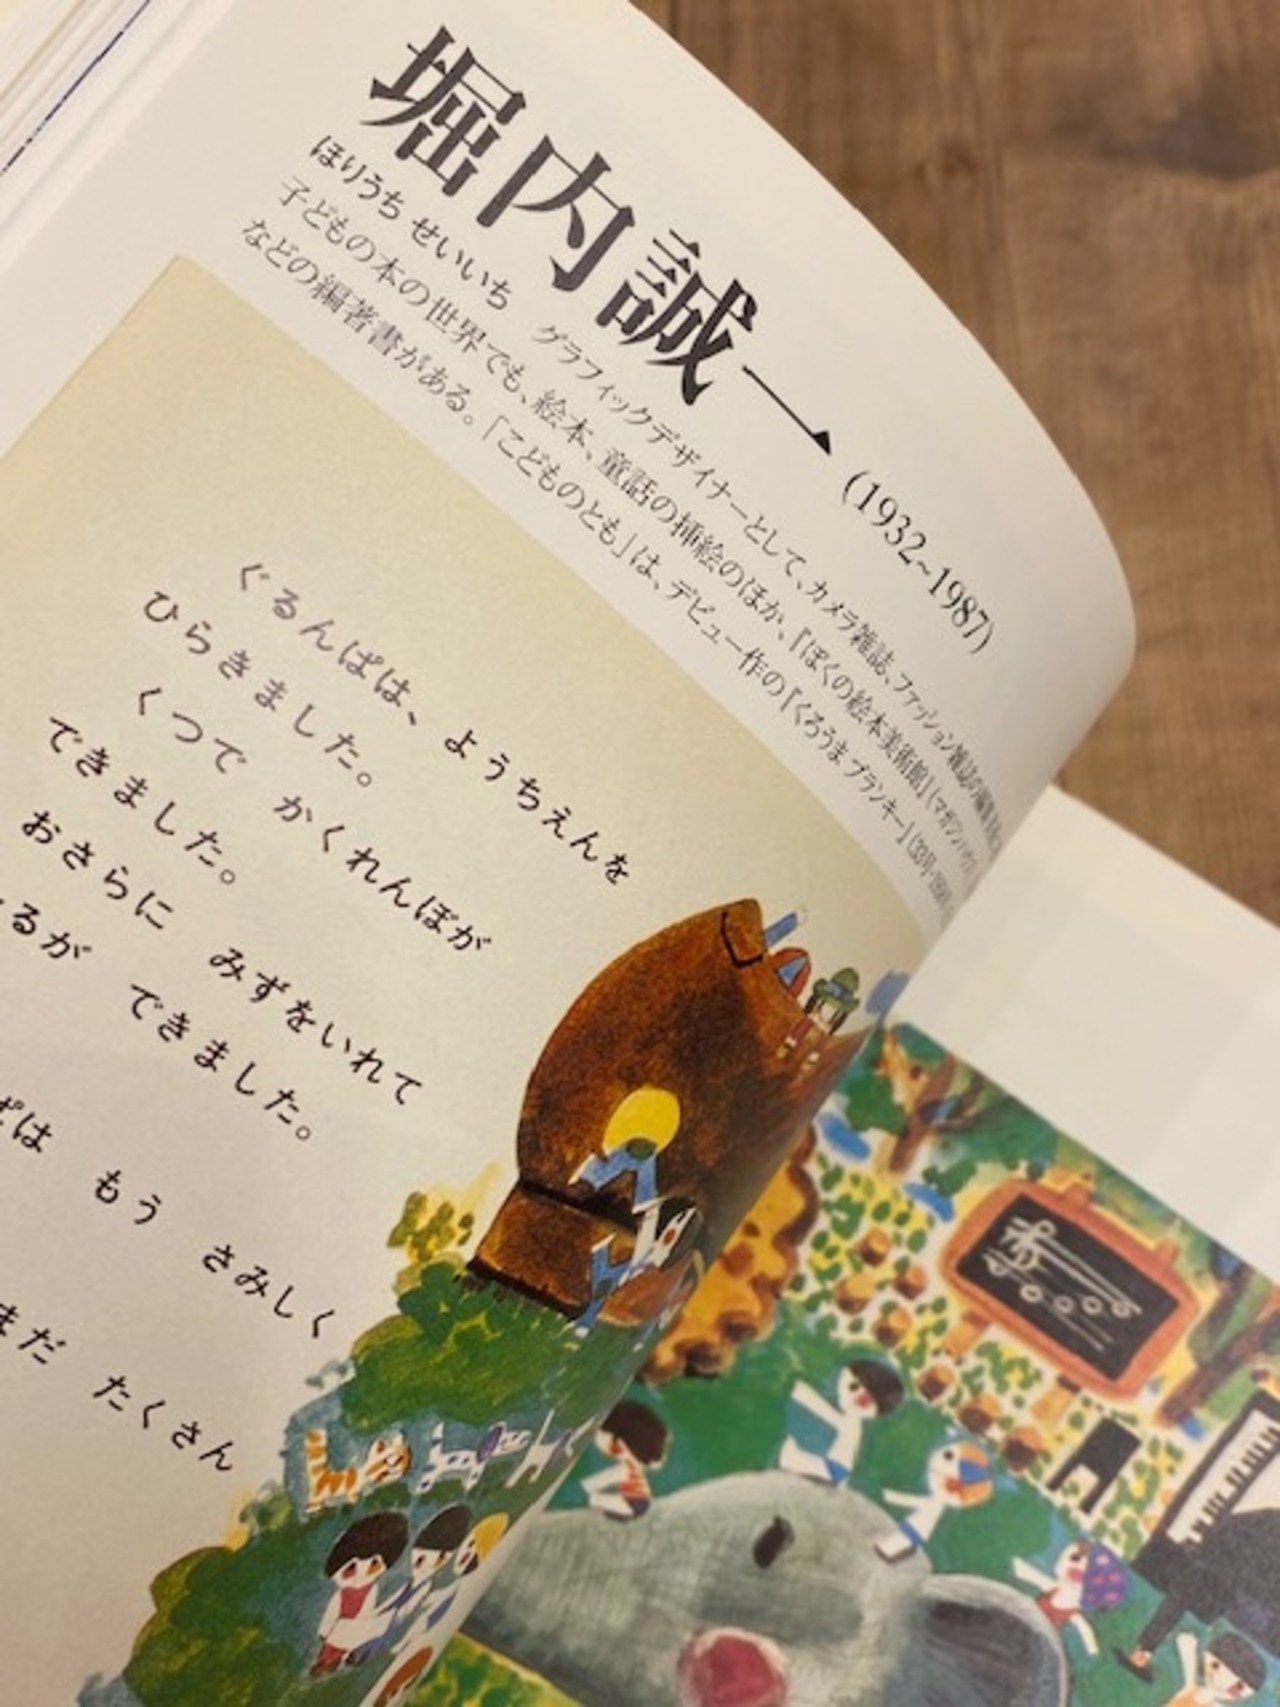 堀内誠一 (1932~1987)
ほりうち せいいち グラフィックデザイナーとして、カメラ雑誌、ファッション雑誌の編集
子どもの本の世界でも、絵本、童話の挿絵のほか、『ぼくの絵本美術館』(マガジンハウス
などの編著書がある。「こどものとも」は、デビュー作の『くろうまブランキー』(33号・
ぐるんぱは、ようちえんを
ひらきました。
くつで かくれんぼが
できました。
おさらに みずをいれて
るが できました。
ぱは もう さみしく
まだ たくさん